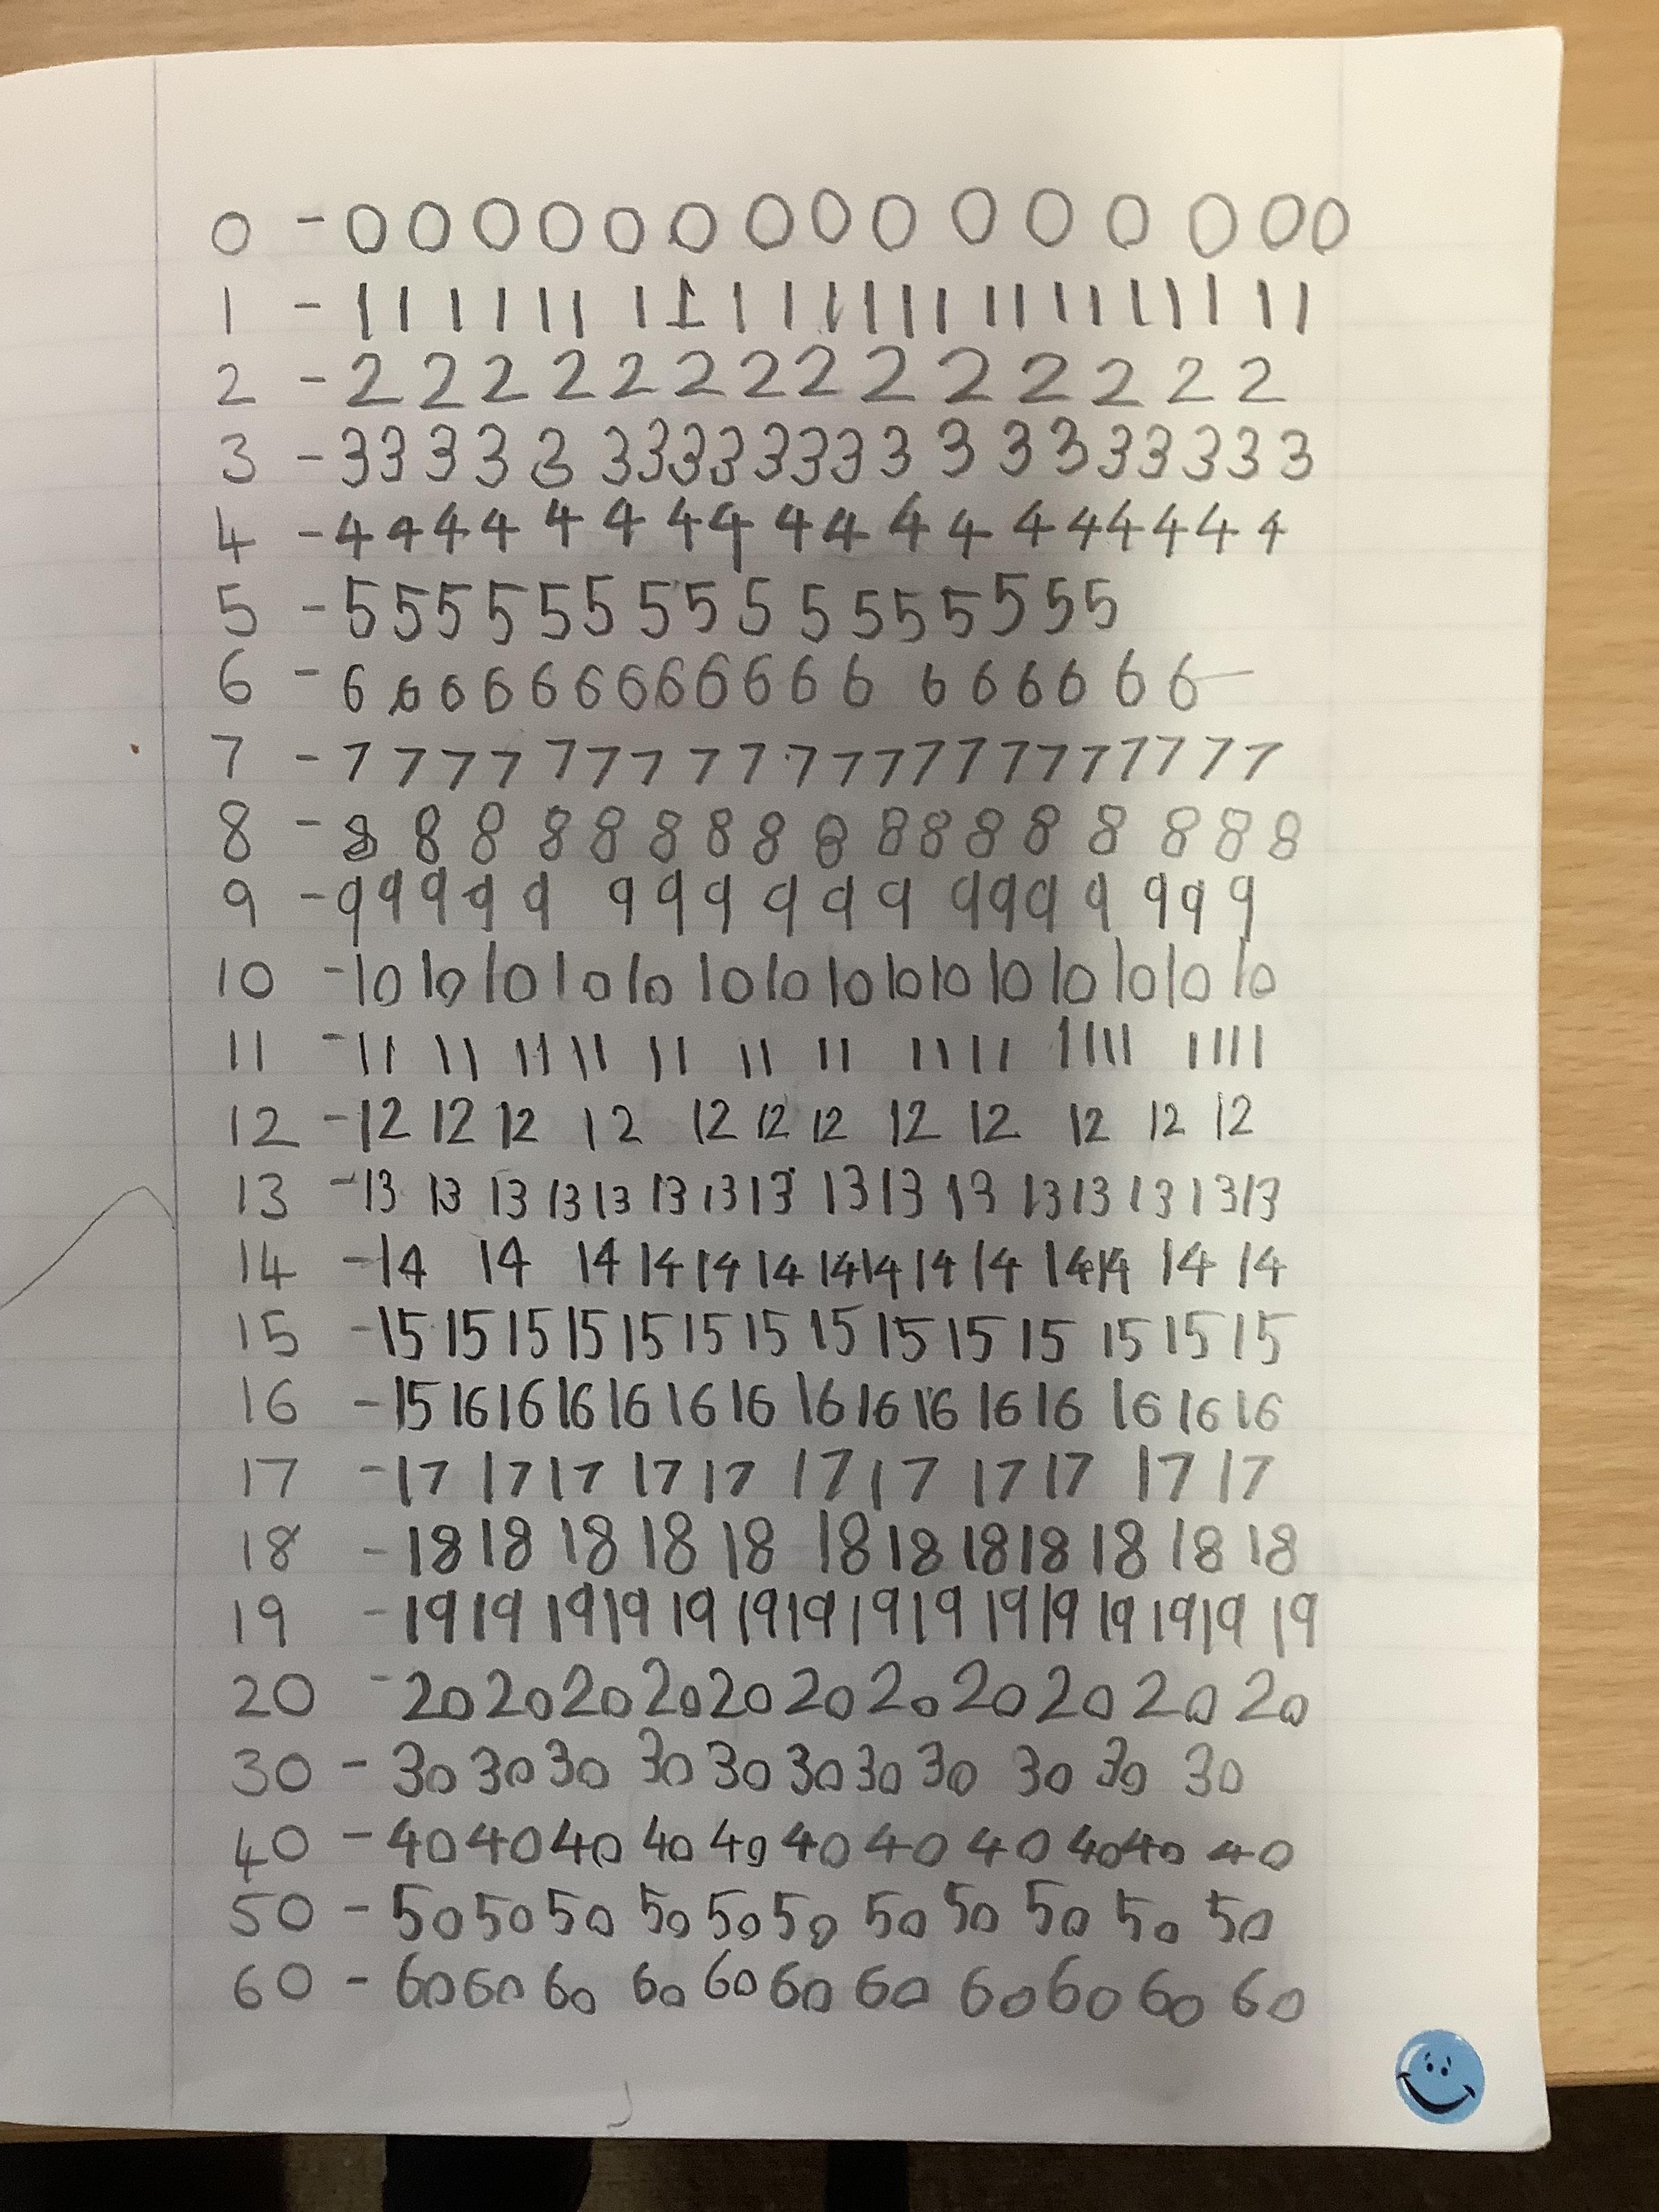 0 - 0 0 0 0 0 0 0 0 0 0 0 0 0 0 0
1 - 1 1 1 1 1 1 1 1 1 1 1 1 1 1 1 1 1 1 1 1 1 1 1
2 - 2 2 2 2 2 2 2 2 2 2 2 2 2 2
3 - 3 3 3 3 3 3 3 3 3 3 3 3 3 3 3 3 3 3 3 3
4 - 4 4 4 4 4 4 4 4 4 4 4 4 4 4 4 4 4 4
5 - 5 5 5 5 5 5 5 5 5 5 5 5 5 5 5 5
6 - 6 6 6 6 6 6 6 6 6 6 6 6 6 6 6 6 6 6
7 - 7 7 7 7 7 7 7 7 7 7 7 7 7 7 7 7 7 7 7 7
8 - 8 8 8 8 8 8 8 8 8 8 8 8 8 8 8 8 8
9 - 9 9 9 9 9 9 9 9 9 9 9 9 9 9 9 9 9 9
10 - 10 10 10 10 10 10 10 10 10 10 10 10 10 10 10
11 - 11 11 11 11 11 11 11 11 11 11 11 11 11
12 - 12 12 12 12 12 12 12 12 12 12 12 12
13 - 13 13 13 13 13 13 13 13 13 13 13 13 13 13 13 13
14 - 14 14 14 14 14 14 14 14 14 14 14 14 14 14
15 - 15 15 15 15 15 15 15 15 15 15 15 15 15 15
16 - 15 16 16 16 16 16 16 16 16 16 16 16 16 16 16
17 - 17 17 17 17 17 17 17 17 17 17 17
18 - 18 18 18 18 18 18 18 18 18 18 18 18
19 - 19 19 19 19 19 19 19 19 19 19 19 19 19 19 19
20 - 20 20 20 20 20 20 20 20 20 20 20
30 - 30 30 30 30 30 30 30 30 30 30 30
40 - 40 40 40 40 40 40 40 40 40 40 40
50 - 50 50 50 50 50 50 50 50 50 50 50
60 - 60 60 60 60 60 60 60 60 60 60 60